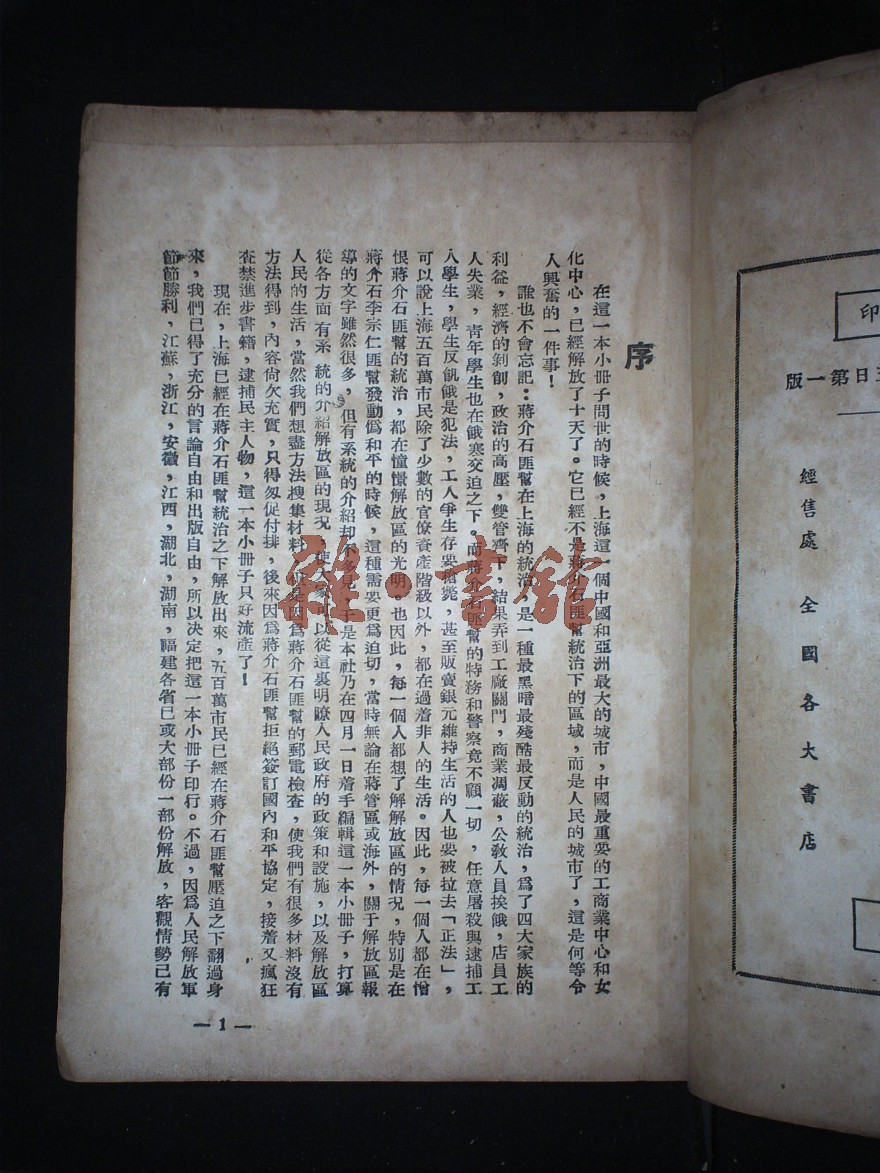 序
在這一本小冊子問世的時候，上海這一個中國和亞洲最大的城市，中國最重要的工商業中心和文
化中心，已經解放了十天了。它已經不是蔣介石匪幫統治下的區域，而是人民的城市了，這是何等令
人興奮的一件事！
誰也不會忘記：蔣介石匪幫在上海的統治，是一種最黑暗最殘酷最反動的統治，爲了四大家族的
利益，經濟的剝削，政治的高壓，雙管齊下，結果弄到工廠關門，商業凋蔽，公敎人員挨餓，店員工
人失業，青年學生也在餓寒交迫之下。而蔣介石匪幫的特務和警察竟不顧一切，任意屠殺與逮捕工
人學生，學生反飢餓是犯法，工人爭生存要槍斃，甚至販賣銀元維持生活的人也要被拉去「正法」，
可以說上海五百萬市民除了少數的官僚資產階級以外，都在過着非人的生活。因此，每一個人都在憎
恨蔣介石匪幫的統治，都在憧憬解放區的光明。也因此，每一個人都想了解解放區的情況，特別是在
蔣介石李宗仁匪幫發動僞和平的時候，這種需要更爲迫切，當時無論在蔣管區或海外，關于解放區報
導的文字雖然很多，但有系統的介紹却不多見，于是本社乃在四月一日着手編輯這一本小冊子，打算
從各方面有系統的介紹解放區的現況，使大家可以從這裏明瞭人民政府的政策和設施，以及解放區
人民的生活，當然我們想盡方法搜集材料，但是因爲蔣介石匪幫的郵電檢查，使我們有很多材料沒有
方法得到，內容尙欠充實，只得匆促付排，後來因爲蔣介石匪幫拒絕簽訂國內和平協定，接着又瘋狂
查禁進步書籍，逮捕民主人物，這一本小冊子只好流產了！
現在，上海已經在蔣介石匪幫統治之下解放出來，五百萬市民已經在蔣介石匪幫壓迫之下翻過身
來，我們已得了充分的言論自由和出版自由，所以決定把這一本小冊子印行。不過，因爲人民解放軍
節節勝利，江蘇，浙江，安徽，江西，湖北，湖南，福建各省已或大部份一部份解放，客觀情勢已有
— 1 —
印
日第一版
經售處 全國各大書店
雅〇書館